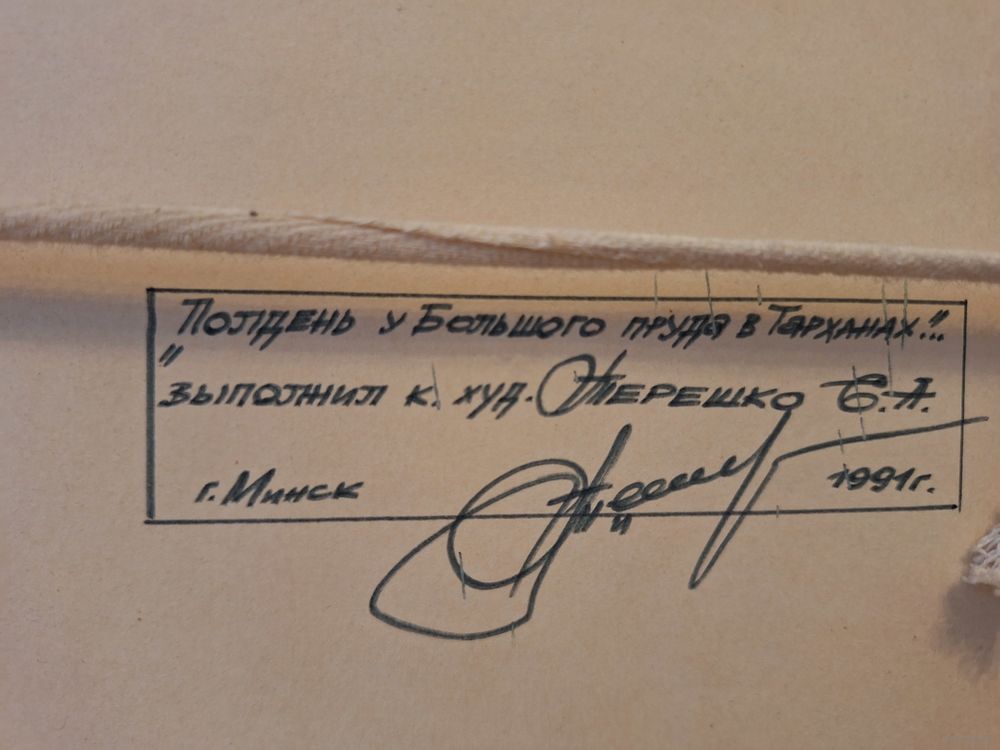 "Полдень у Большого пруда в Тарханах..."
"
выполнил к. худ. Терешко Е.А.
г. Минск 1991г.